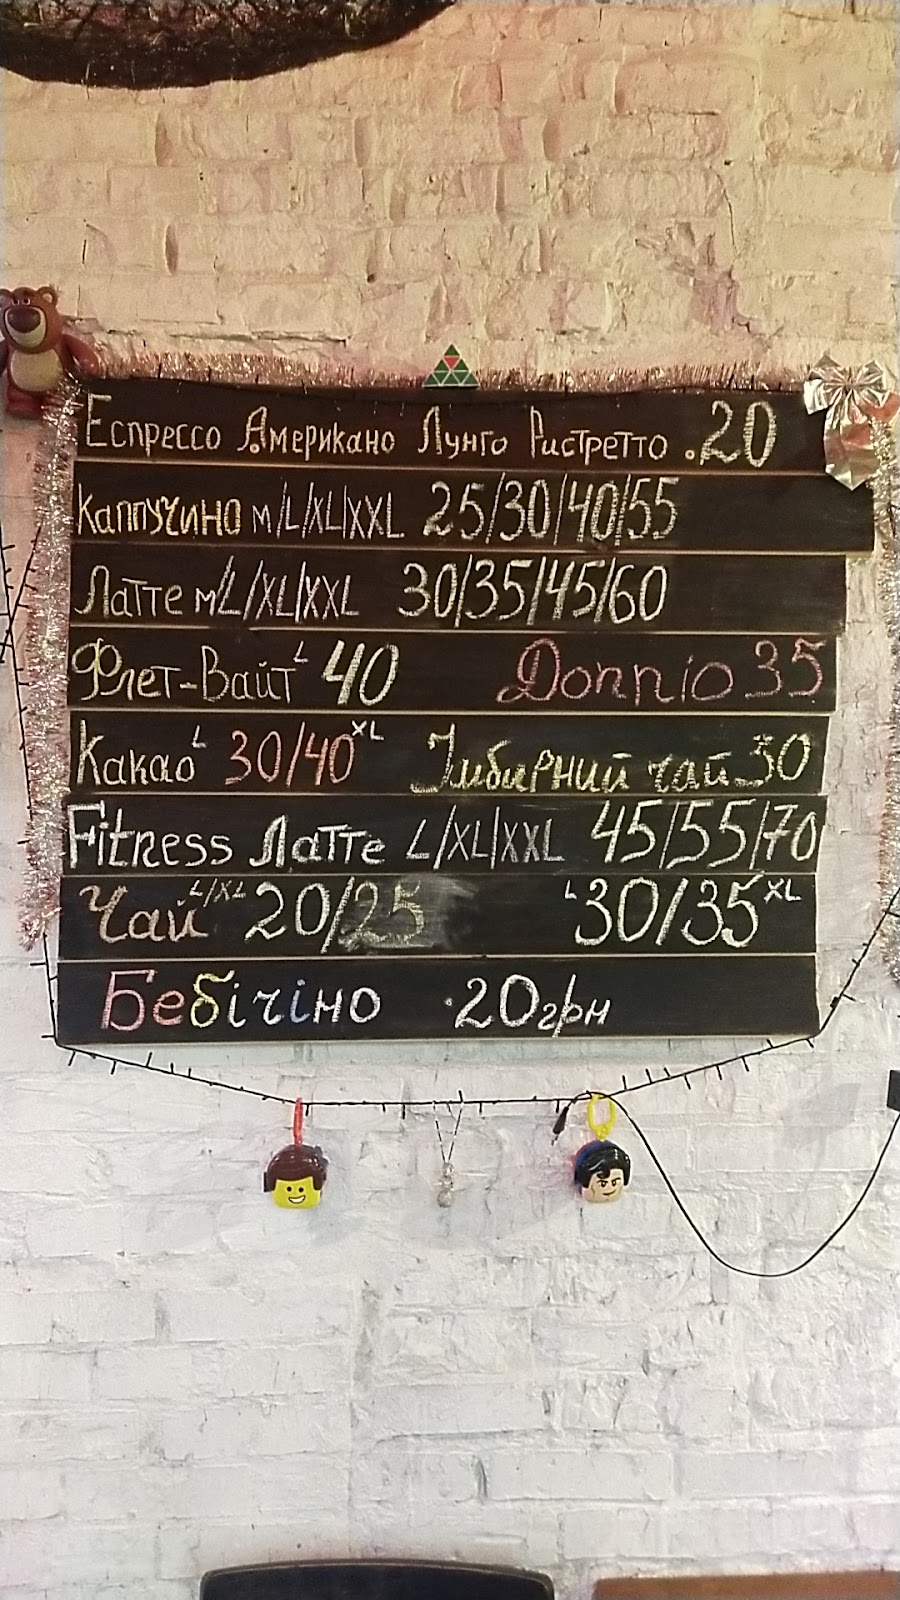 Еспрессо Американо Лунго Ристретто .20
Каппучино м/L/XL/XXL 25/30/40/55
Латте м/L/XL/XXL 30/35/45/60
Флет-Вайт L 40 Donnio 35
Какао L 30/40 XL Імбирний чай 30
Fitness Латте L/XL/XXL 45/55/70
Чай L/XL 20/25 L 30/35 XL
Бебічіно .20грн